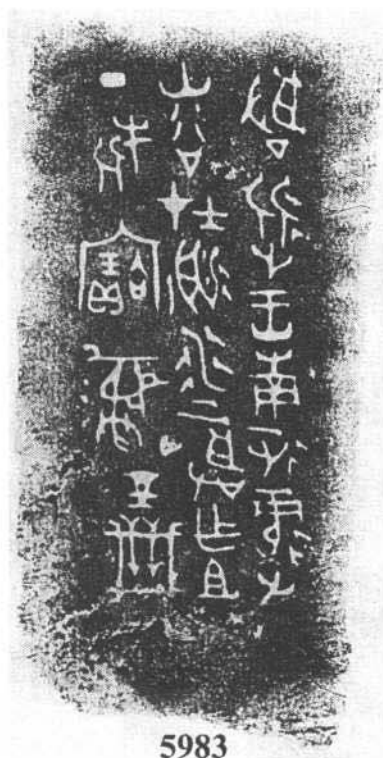 啟從王南征
山谷在洀水上啟乍且
丁旅寶彝
5983